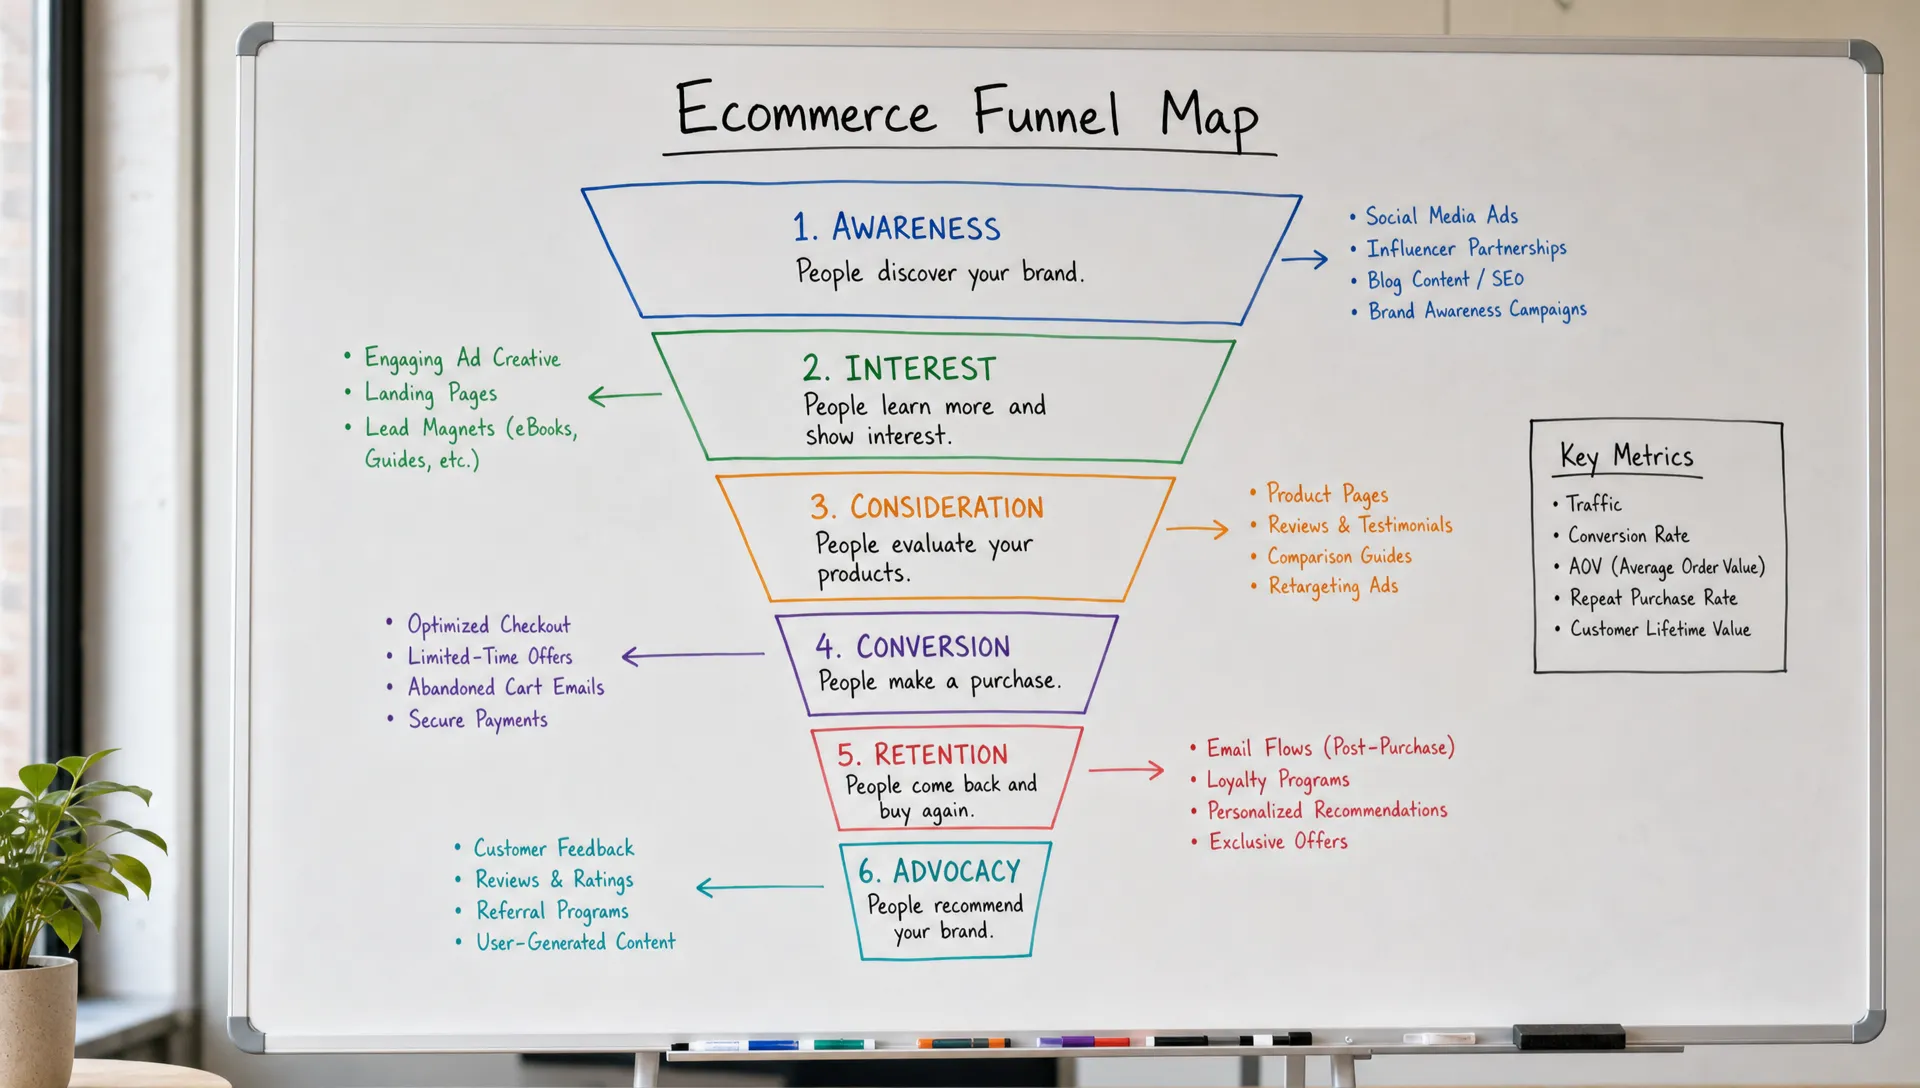 Ecommerce Funnel Map
1. AWARENESS
People discover your brand.
• Social Media Ads
• Influencer Partnerships
• Blog Content / SEO
• Brand Awareness Campaigns
2. INTEREST
People learn more and
show interest.
• Engaging Ad Creative
• Landing Pages
• Lead Magnets (eBooks,
Guides, etc.)
3. CONSIDERATION
People evaluate your
products.
• Product Pages
• Reviews & Testimonials
• Comparison Guides
• Retargeting Ads
Key Metrics
• Traffic
• Conversion Rate
• AOV (Average Order Value)
• Repeat Purchase Rate
• Customer Lifetime Value
4. CONVERSION
People make a purchase.
• Optimized Checkout
• Limited-Time Offers
• Abandoned Cart Emails
• Secure Payments
5. RETENTION
People come back and
buy again.
• Email Flows (Post-Purchase)
• Loyalty Programs
• Personalized Recommendations
• Exclusive Offers
6. ADVOCACY
People recommend
your brand.
• Customer Feedback
• Reviews & Ratings
• Referral Programs
• User-Generated Content